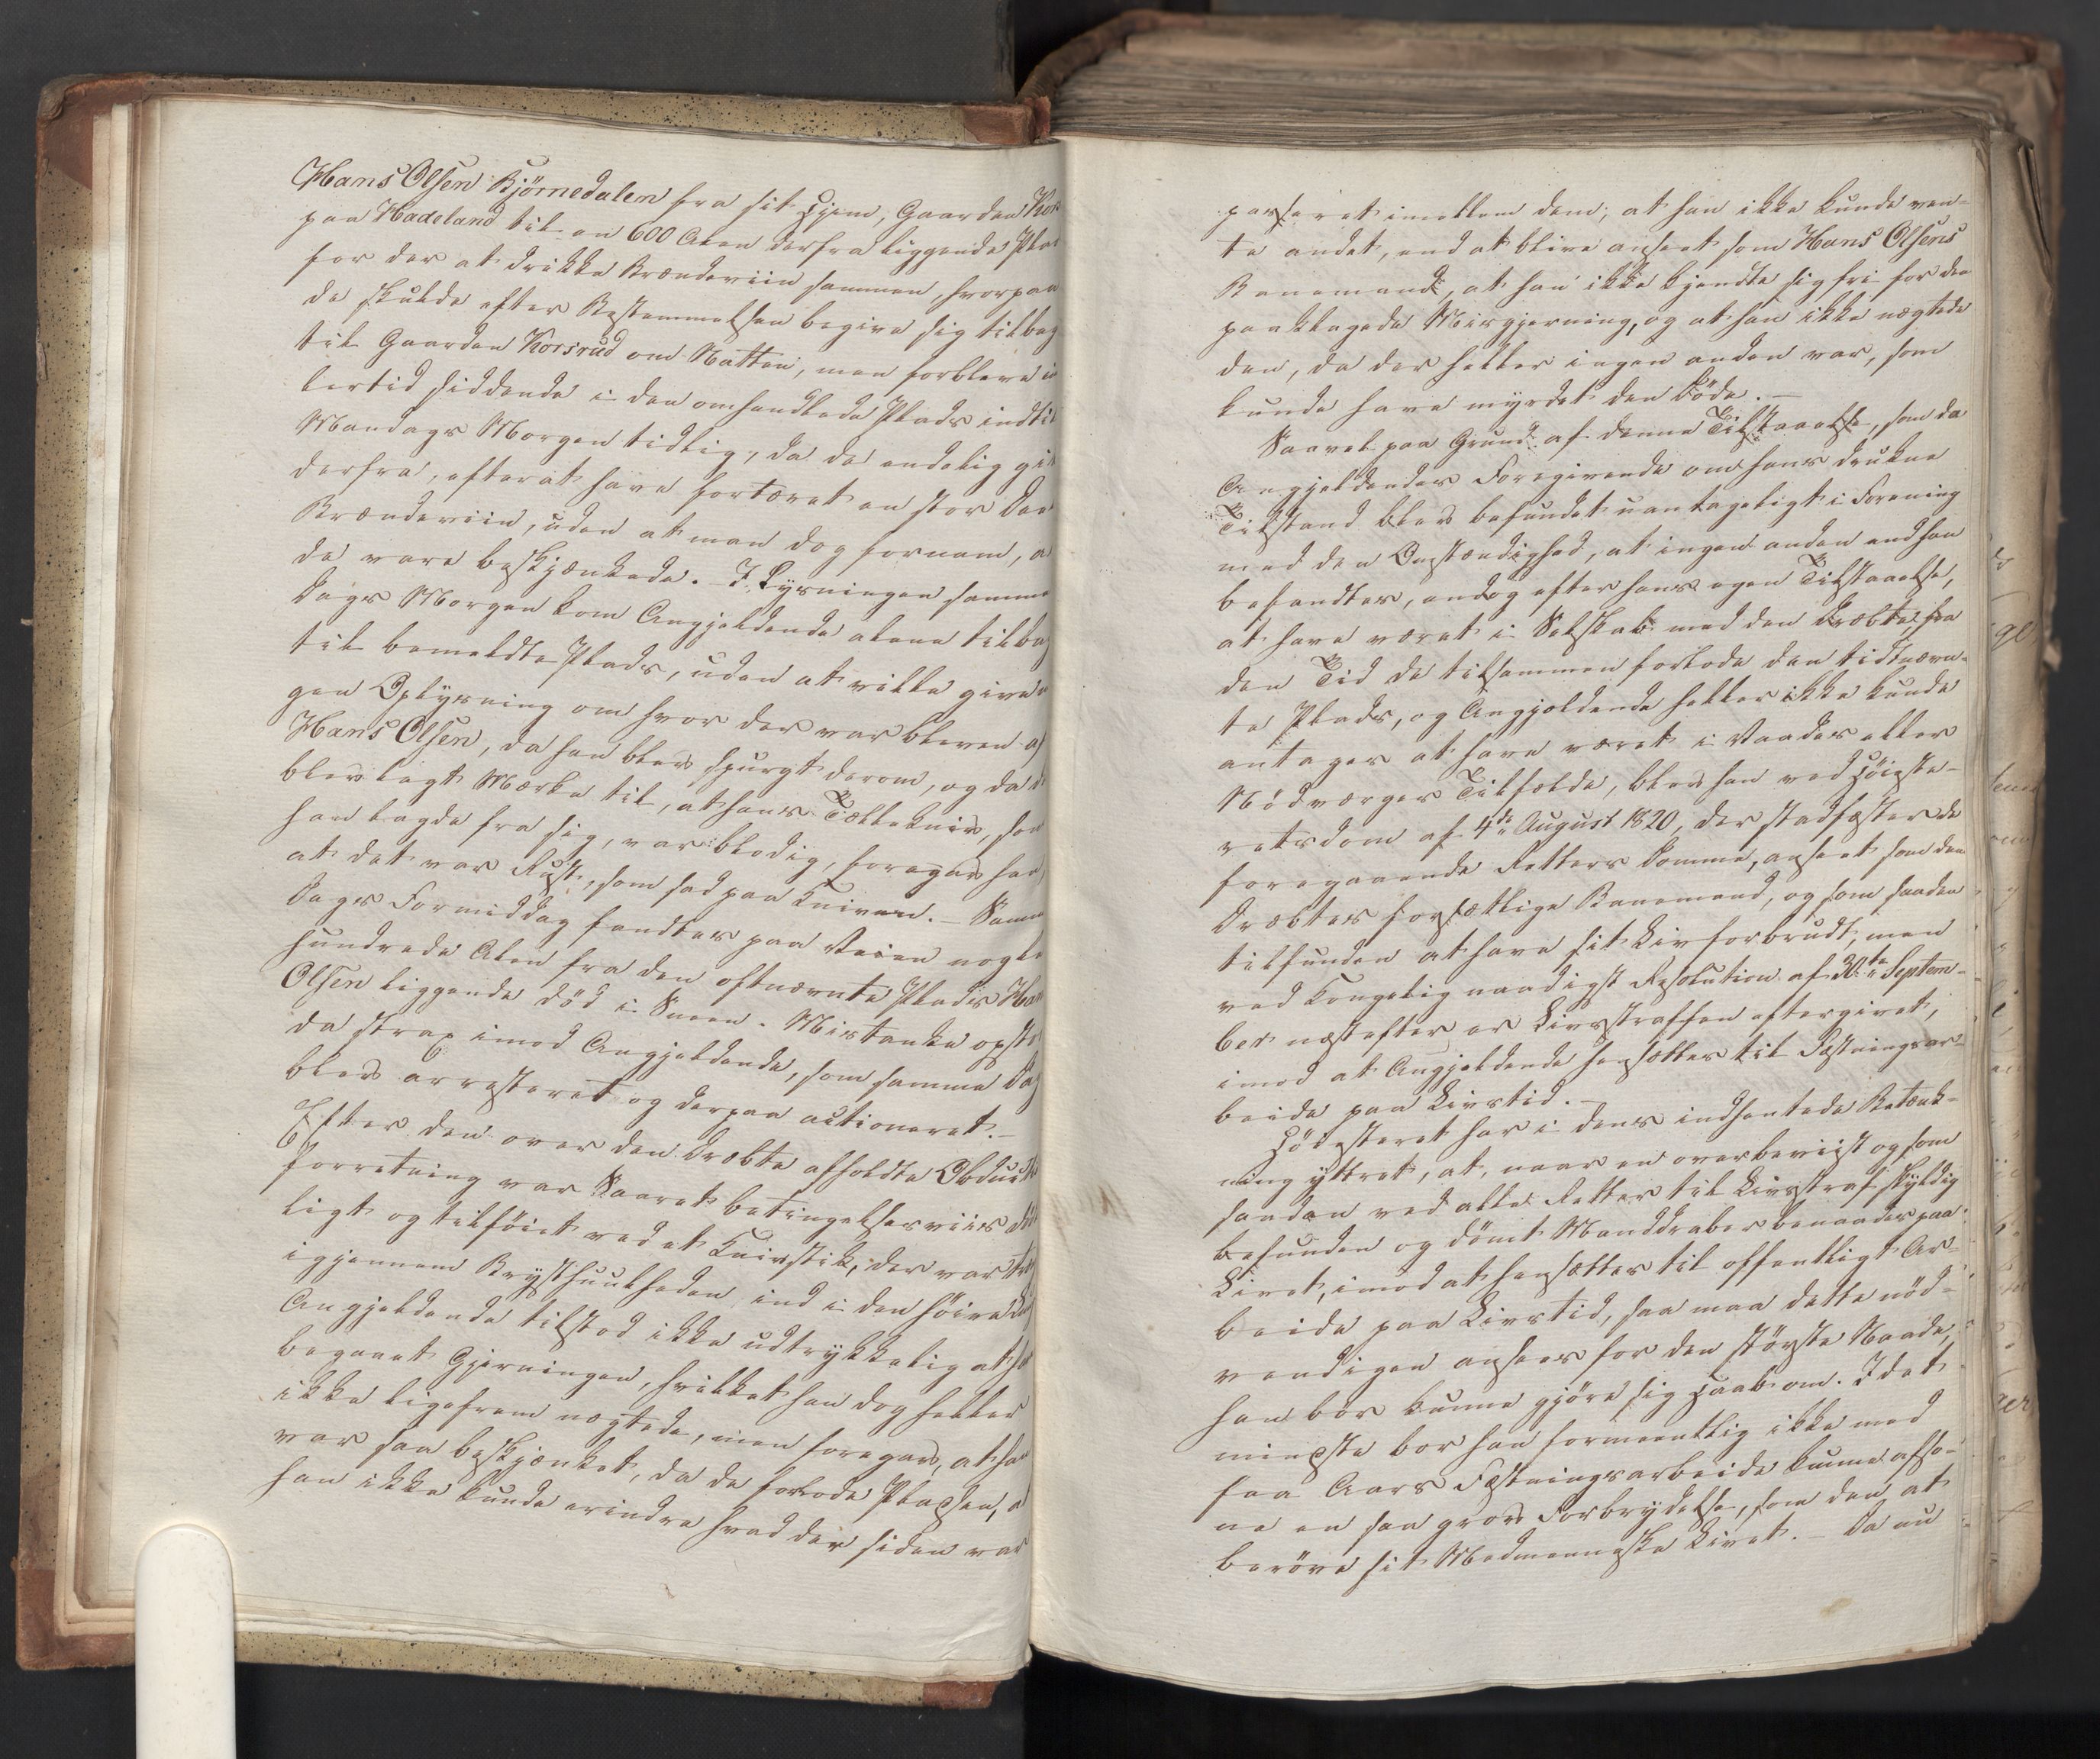 Hans Olsen Björnedalen fra sit Hjem, Gaarden Kor
paa Hadeland til en 600 Alen derfra liggende Plad
for der at drikke Brændeviin sammen, hvorpaa
de skulde efter Bestemmelsen begive sig tilbag
til Gaarden Korsrud om Natten, men forbleve i
lertid siddende i den omhandlede Plads indtil
Mandags Morgen tidlig, da de endelig gik
derfra, efterat have fortæret en stor Deel
Brændeviin, uden at man dog fornam, a
de vare beskjænkede. – I Lysningen samme
Dags Morgen kom Angjeldende alene tilba
til bemeldte Plads, uden at ville give
gen Oplysning om hvor der var bleven af
Hans Olsen, da han blev spurgt derom, og da
blev lagt Mærke til, at hans Tællekniv, som
han lagde fra sig, var blodig, foregav han,
at det var Rust, som sad paa Kniven. – Samme
Dags Formiddag fandtes paa Veien nogle
hundrede Alen fra den oftnævnte Plads Han
Olsen liggende död i Sneen. Mistanke opstod
da strax imod Angjeldende, som samme Dag
blev arresteret og derpaa actioneret. –
Efter den over den Dræbte afholdte Obducti
forretning var Saaret betingelsesviis död
ligt og tilföiet ved et Knivstik, der var
igjennem Brysthuulheden ind i den höire
Angjeldende tilstod ikke udtrykkelig at ha
begaaet Gjerningen, hvilket han dog heller
ikke ligefrem nægtede, men foregav, at han
var saa beskjænket, da de forlode Pladsen, a
han ikke kunde erindre hvad der siden var
passeret imellem dem; at han ikke kunde ven-
te andet, end at blive anseet som Hans Olsens
Banemand, at han ikke kjendte sig fri for den
paaklagede Misgjerning, og at han ikke nægtede
den, da der heller ingen anden var, som
kunde have myrdet den Döde. –
Saavel paa Grund af denne Tilstaaelse, som da
Angjeldendes Foregivende om hans drukne
Tilstand blev befundet uantageligt i Forening
med den Omstændighed, at ingen anden end han
befandtes, endog efter hans egen Tilstaaelse,
at have været i Selskab med den Dræbte fra
den Tid de tilsammen forlode den tidtnævn-
te Plads, og Angjeldende heller ikke kunde
antages at have været i Vaades eller
Nödværges Tilfælde, blev han ved Höieste-
retsdom af 4de August 1820, der stadfæstede
foregaaende Retters Domme, anseet som den
Dræbtes forsætlige Banemand, og som saadan
tilfunden at have sit Liv forbrudt, men
ved Kongelig naadigst Resolution af 30te Septem-
ber næstefter er Livsstraffen eftergivet,
imod at Angjeldende hensættes til Fæstningsar-
beide paa Livstid. –
Höiesteret har i dens indhentede Betænk-
ning yttret, at, naar en overbeviist og som
saadan ved alle Retter til Livsstraf skyldig
befunden og dömt Manddraber benaades paa
Livet, imod at hensættes til offentligt Ar-
beide paa Livstid, saa maa dette nöd-
vendigen ansees for den störste Naade,
han bör kunne gjöre sig Haab om. I det
mindste bör han formeentlig ikke med
faa Aars Fæstningsarbeide kunne afso-
ne en saa grov Forbrydelse, som den at
beröve sit Medmenneske Livet. – Da nu